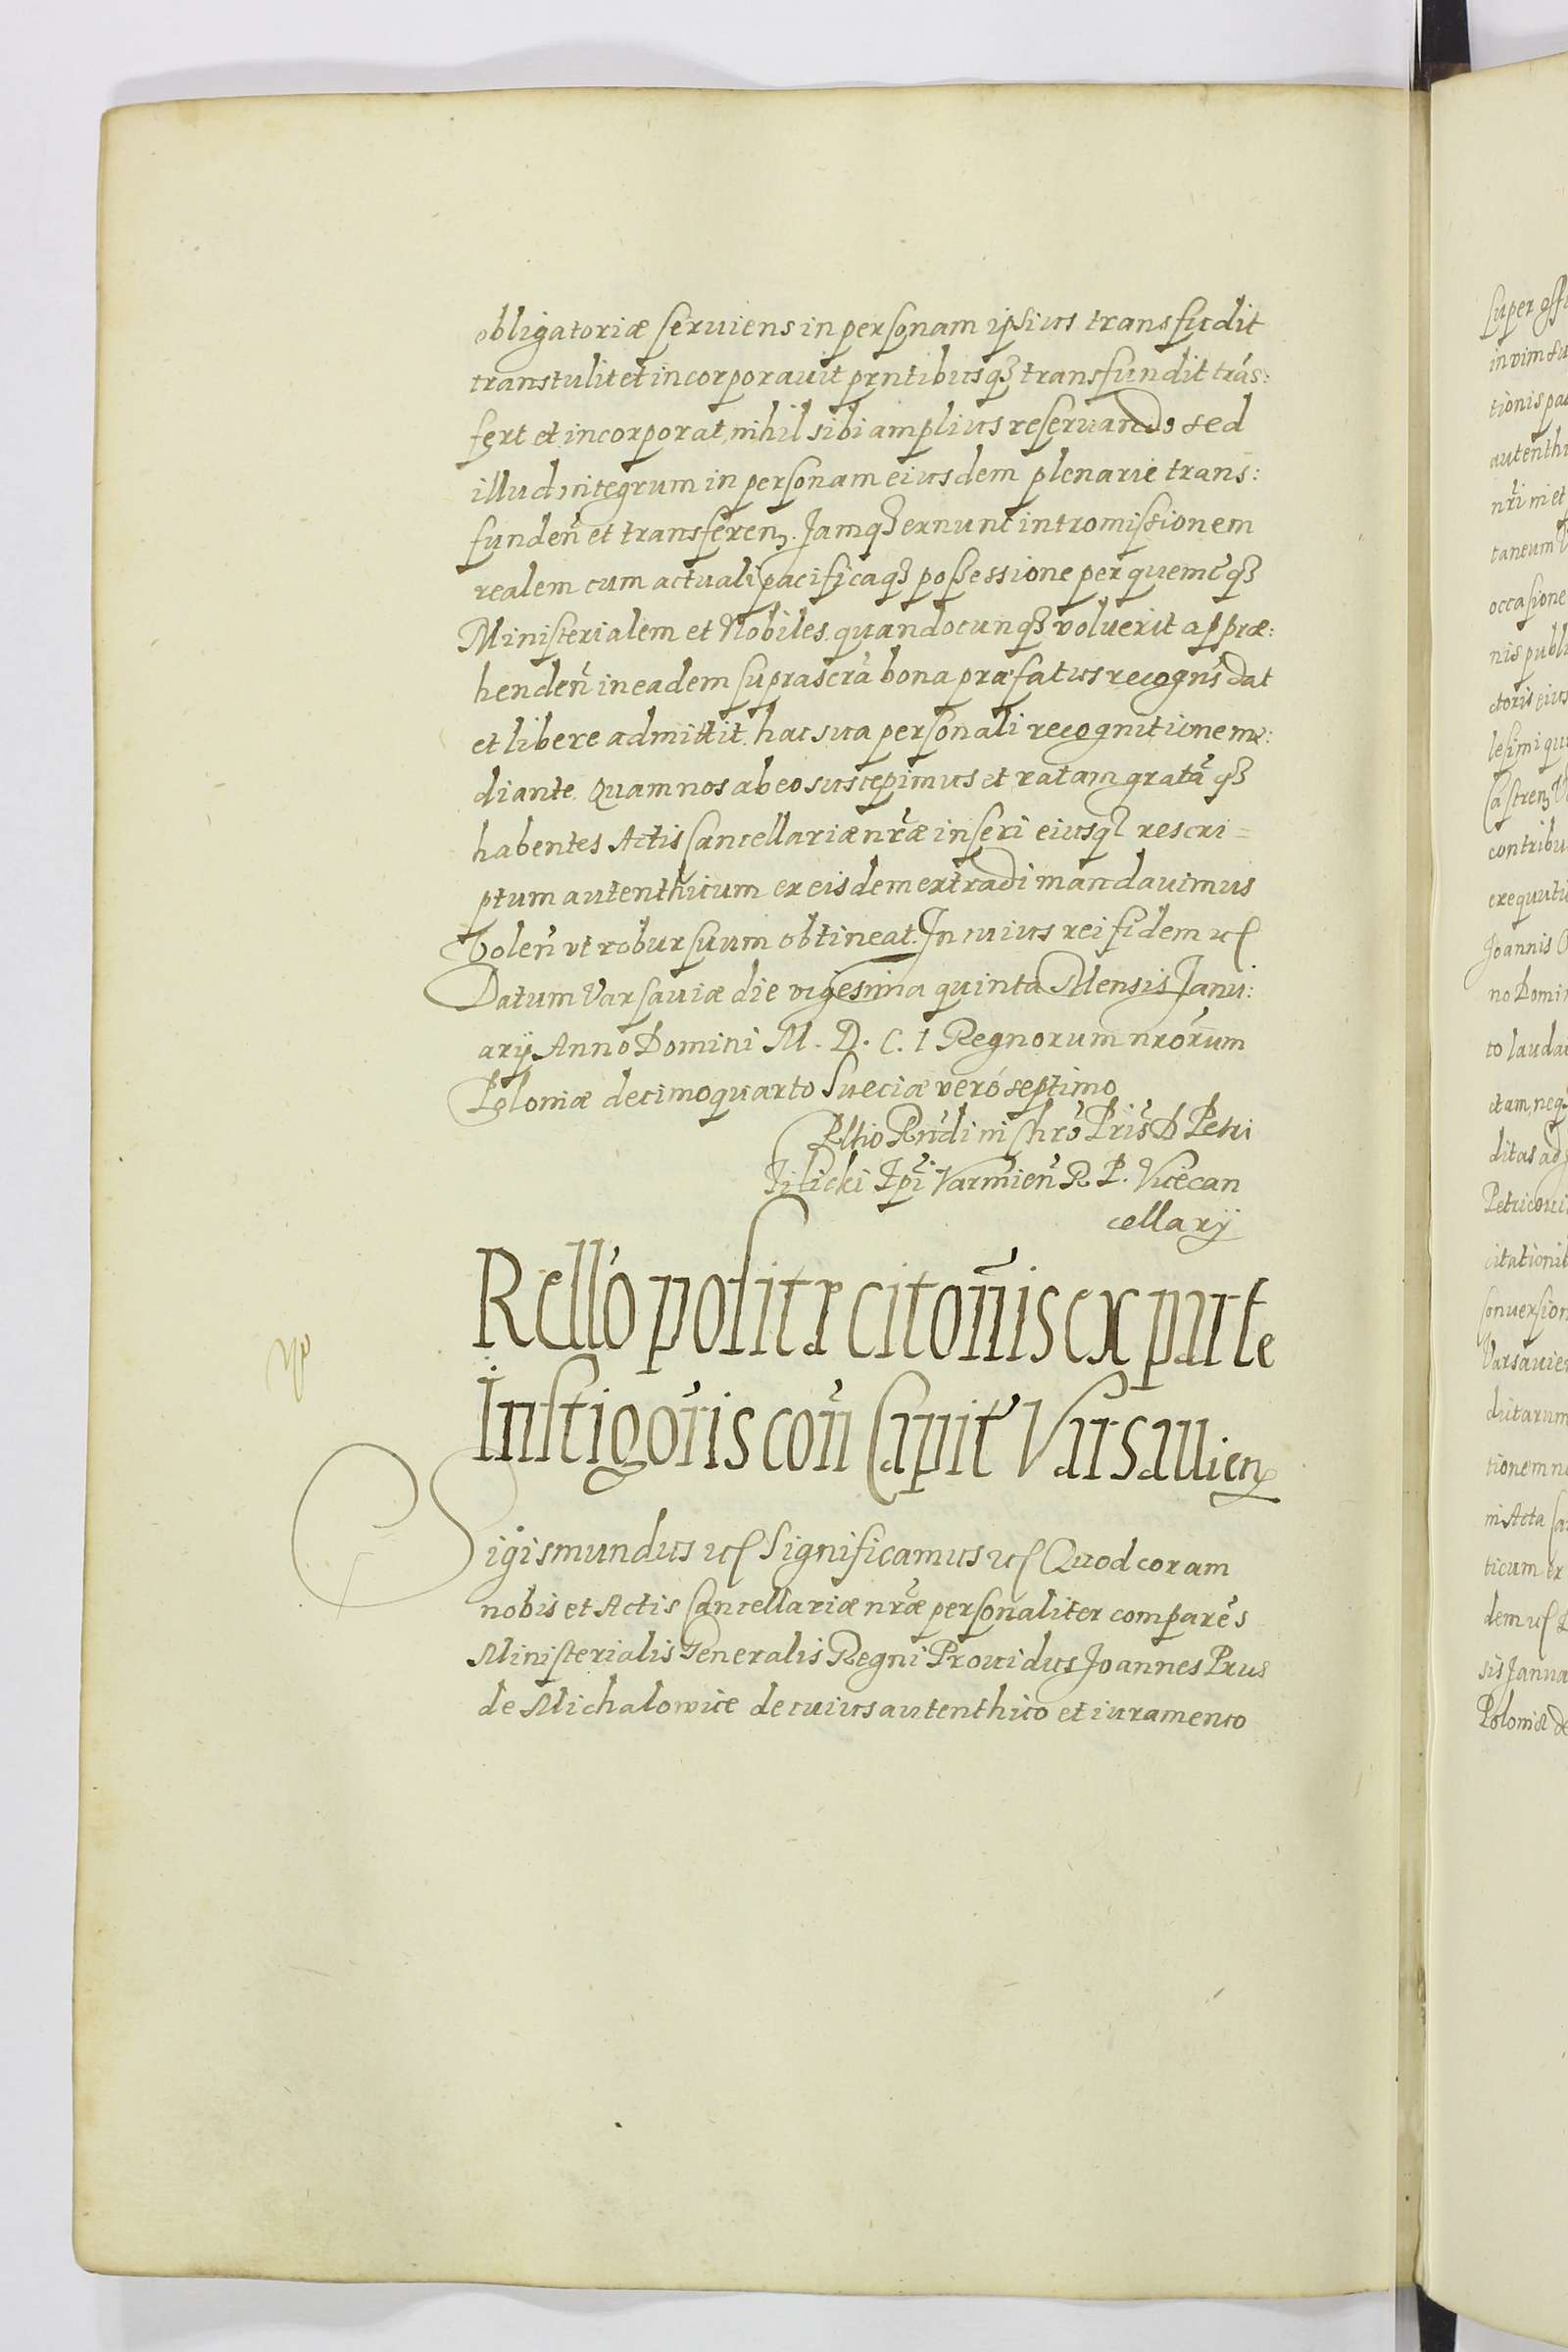 obligatoriæ seruiens in personam ipsius transfudit
transtulit et incorporauit prntibusq3 transfundit trãs:
fert et incorporat, nihil sibi amplius reseruando sed
illud integrum in personam eiusdem plenarie trans:
funden̄ et transferen3. Jamq3 ex nunc intromissionem
realem cum actuali pacificaq3 possessione per quemc̃q3
Ministerialem et Nobiles quandocunq3 voluerit appræ:
henden̄ in eadem suprascrã bona præfatus recogns̃ dat
et libere admittit hac sua personali recognitione me:
diante. Quam nos ab eo suscepimus et ratam gratã q3
habentes Actis Cancellariæ nrãe inseri eiusq3 rescri=
ptum autenthicum ex eisdem extradi mandauimus
Volen̄ vt robur suum obtineat. In cuius rei fidem etc
Datum Varsauiæ die vigesima quinta Mensis Janu:
arÿ Anno Domini M. D. C. 1 Regnorum nrõrum
Poloniæ decimoquarto Sueciæ veró septimo
Rltio Rndĩ in Chrõ Pris̃ D Petri
Tilicki Epĩ Varmien̄ R. P. Vicecan
cellarÿ
Rellõ posit̃ citon̄is ex parte
Instigor̃is con̄ Capit̃ Varsauien3
Sigismundus etc Significamus etc Quod coram
nobis et Actis Cancellariæ nrãe personaliter comparẽs
Ministerialis Generalis Regni Prouidus Joannes Prus
de Michalowice de cuius autenthico et iuramento
in vim su
autenth
taneum
occasione
nis publi
ctoris eius
lesimi qu
contribu
exequuti
Joannis
no Domi
to lauda
ditas ad
citationi
conuersion
Varsauien
ditarum
tionem n
in Acta Ca
ticum ex
dem etc
sis Janua
Poloniæ de